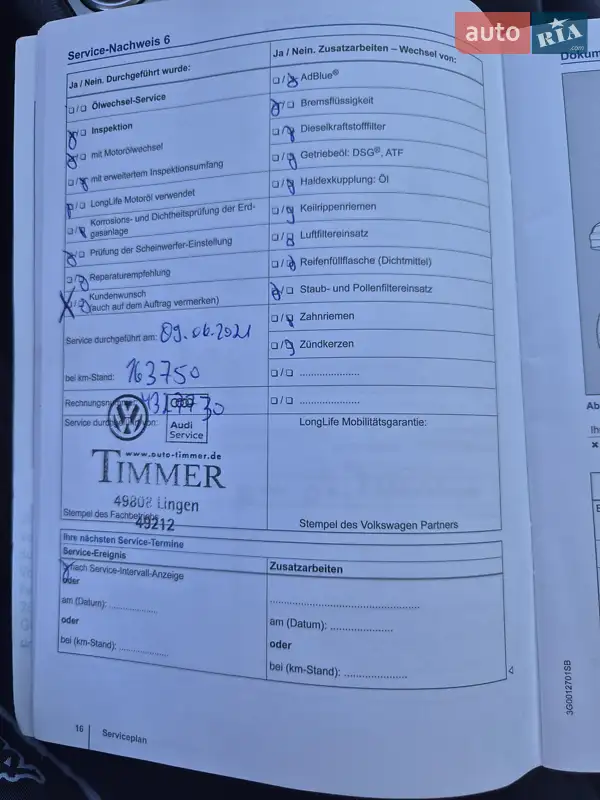 auto RIA .com
Service-Nachweis 6
Ja / Nein. Durchgeführt wurde:
❏/❏ Ölwechsel-Service
❏/❏ Inspektion
❏/❏ mit Motorölwechsel
❏/❏ mit erweitertem Inspektionsumfang
❏/❏ LongLife Motoröl verwendet
❏/❏ Korrosions- und Dichtheitsprüfung der Erd-
gasanlage
❏/❏ Prüfung der Scheinwerfer-Einstellung
❏/❏ Reparaturempfehlung
❏/❏ Kundenwunsch
(auch auf dem Auftrag vermerken)
Service durchgeführt am: 09.06.2021
bei km-Stand: 163750
Rechnungsnu
Service durchgeführt von:
Audi
Service
www.auto-timmer.de
TIMMER
49808 Lingen
Stempel des Fachbetriebs
49212
Ja / Nein. Zusatzarbeiten – Wechsel von:
❏/❏ AdBlue®
❏/❏ Bremsflüssigkeit
❏/❏ Dieselkraftstofffilter
❏/❏ Getriebeöl: DSG®, ATF
❏/❏ Haldexkupplung: Öl
❏/❏ Keilrippenriemen
❏/❏ Luftfiltereinsatz
❏/❏ Reifenfüllflasche (Dichtmittel)
❏/❏ Staub- und Pollenfiltereinsatz
❏/❏ Zahnriemen
❏/❏ Zündkerzen
❏/❏ ....................
❏/❏ ....................
LongLife Mobilitätsgarantie:
Stempel des Volkswagen Partners
Ihre nächsten Service-Termine
Service-Ereignis
nach Service-Intervall-Anzeige
oder
am (Datum): ................
oder
bei (km-Stand): ................
Zusatzarbeiten
................................................
am (Datum): ....................
oder
bei (km-Stand): ....................
16
Serviceplan
Dokum
Ab
Ih
3G0012701SB